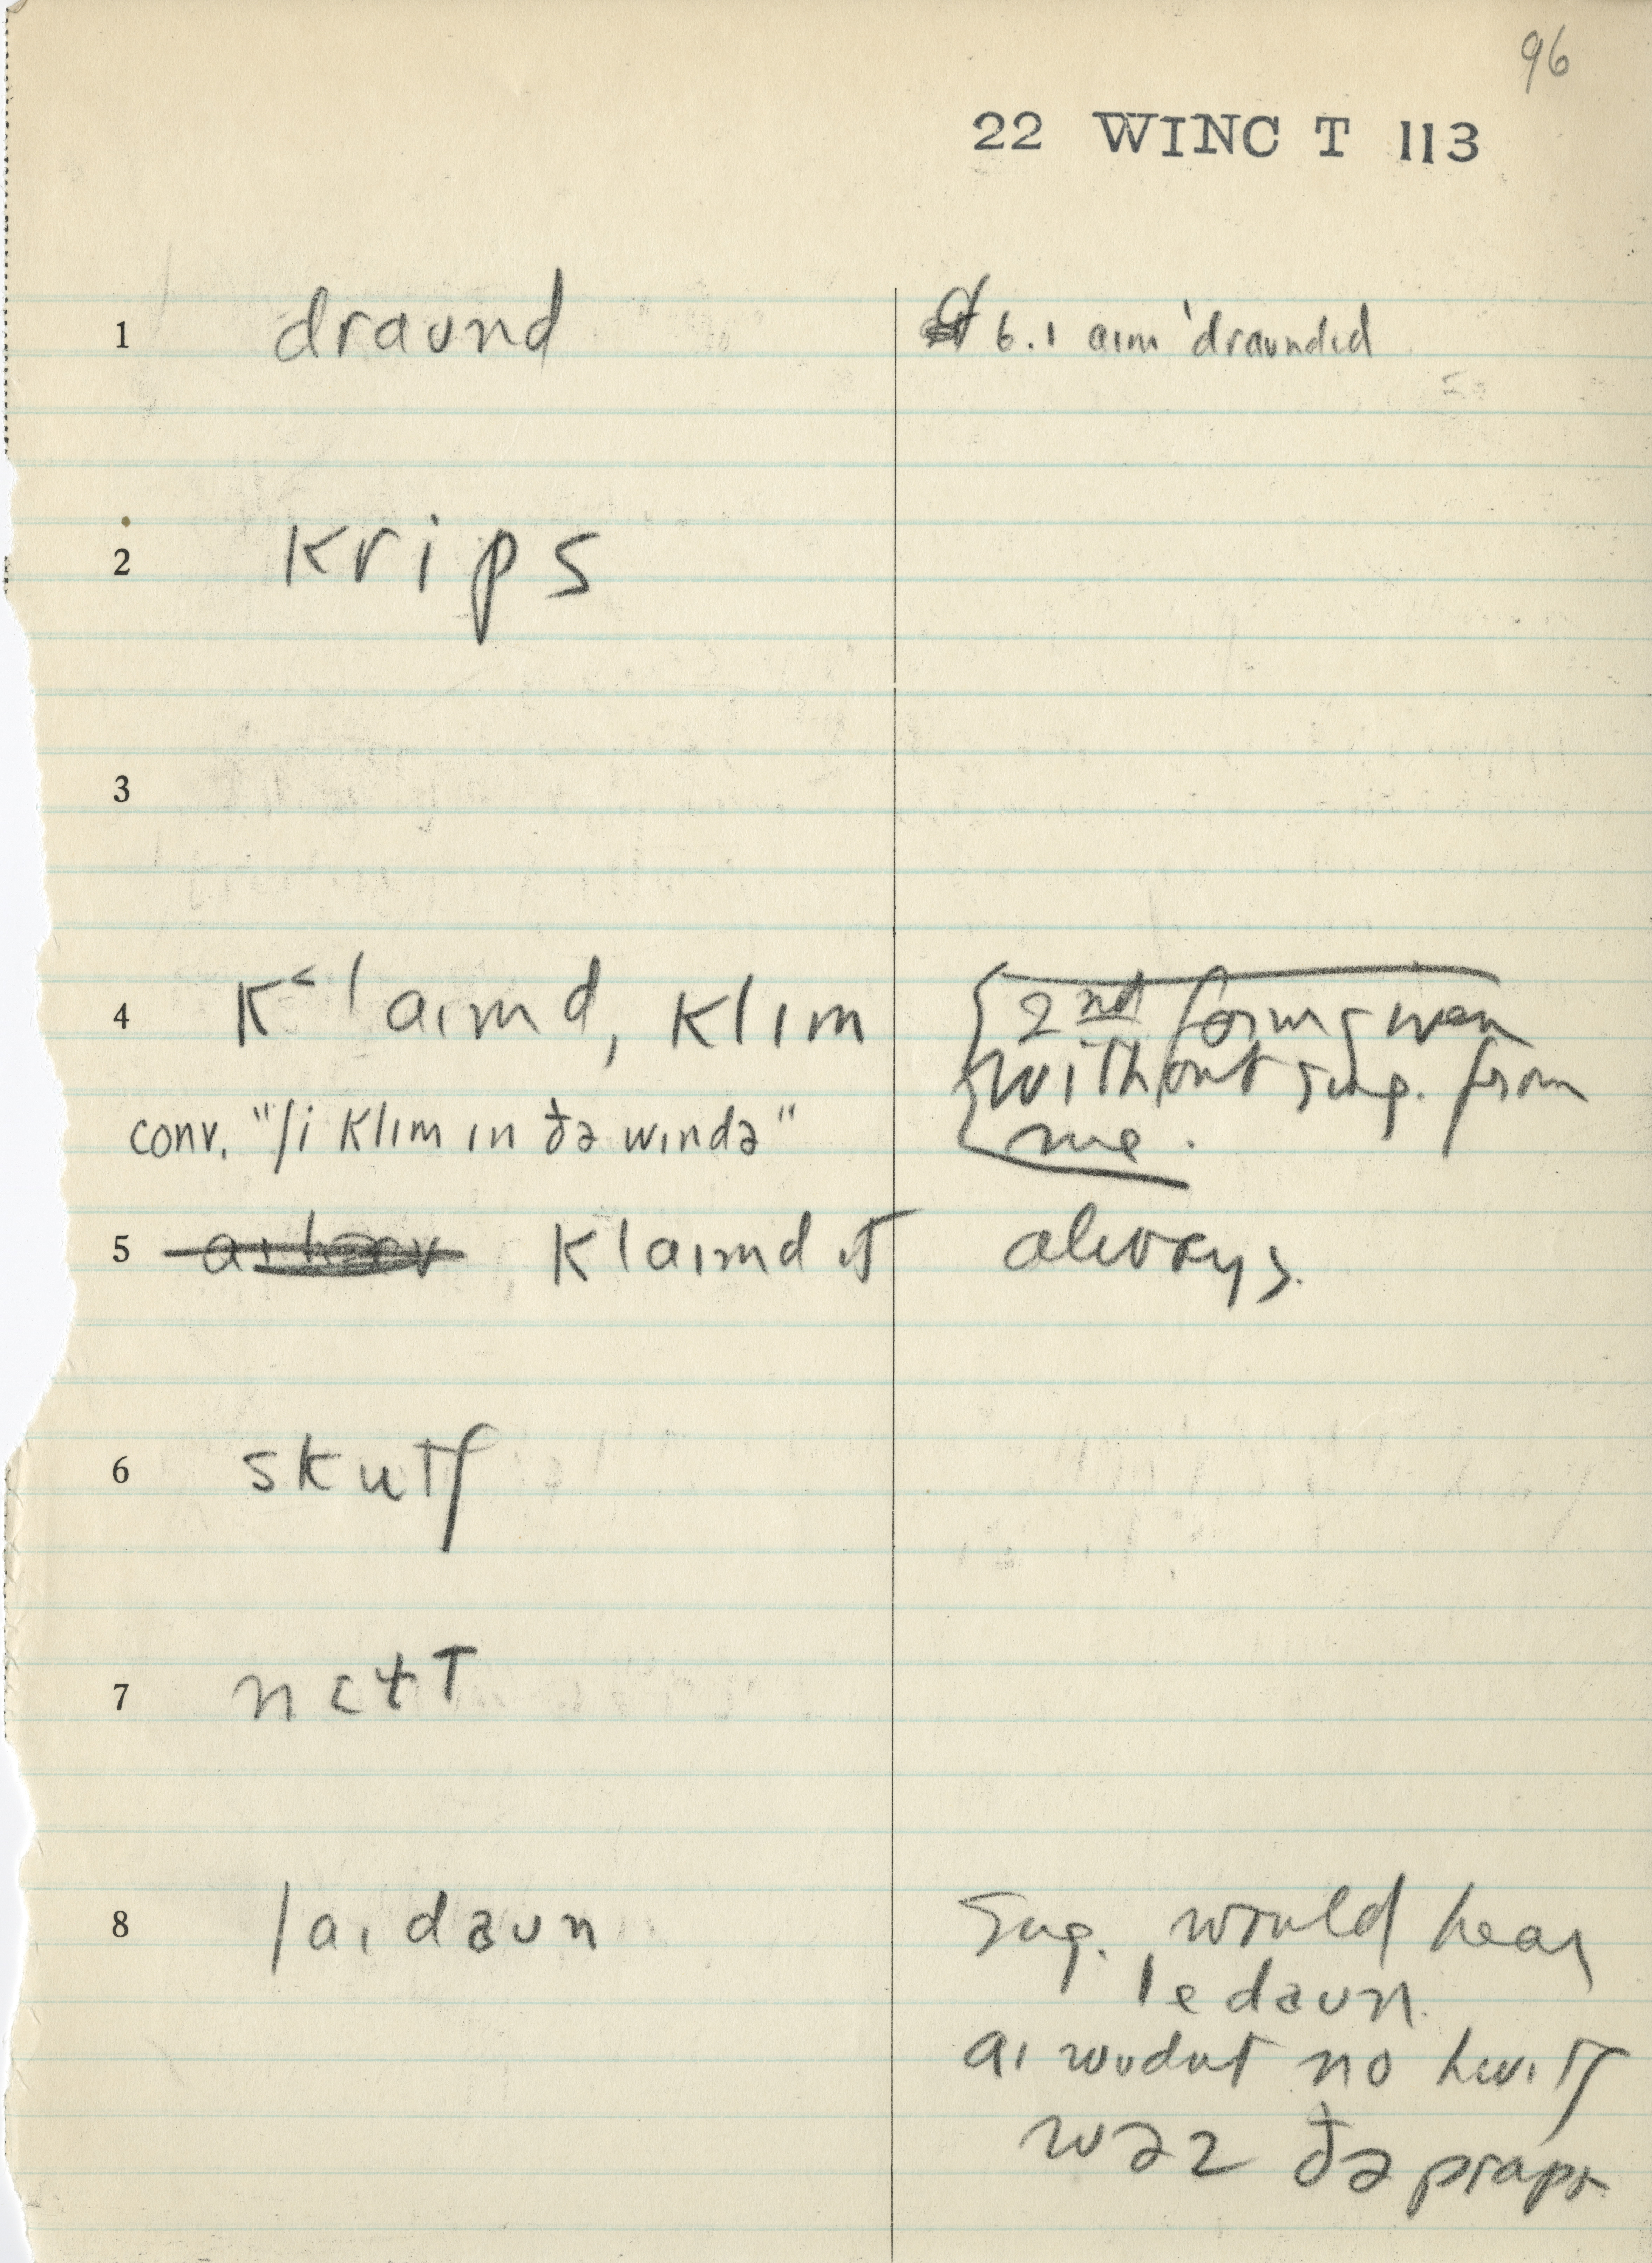 96
22 WINC T 113
1 draʊnd 6.1 aɪm ˈdraʊndɪd
2 krips
3
4 k˂laɪmd, klɪm {2nd form given
without sug. from
conv. "ʃi klɪm ɪn ðə wɪndə" me.
5 klaɪmd ɪt always.
6 skutʃ
7 nɛɫt
8 laɪ daʊn Sug. would hear
le daʊn.
aɪ wʊdnt no hwɪtʃ
wəz ðə prapɚ